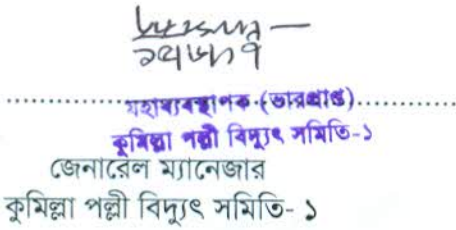 মহাব্যবস্থাপক (ভারপ্রাপ্ত)
কুমিল্লা পল্লী বিদ্যুৎ সমিতি-১
জেনারেল ম্যানেজার
কুমিল্লা পল্লী বিদ্যুৎ সমিতি- ১